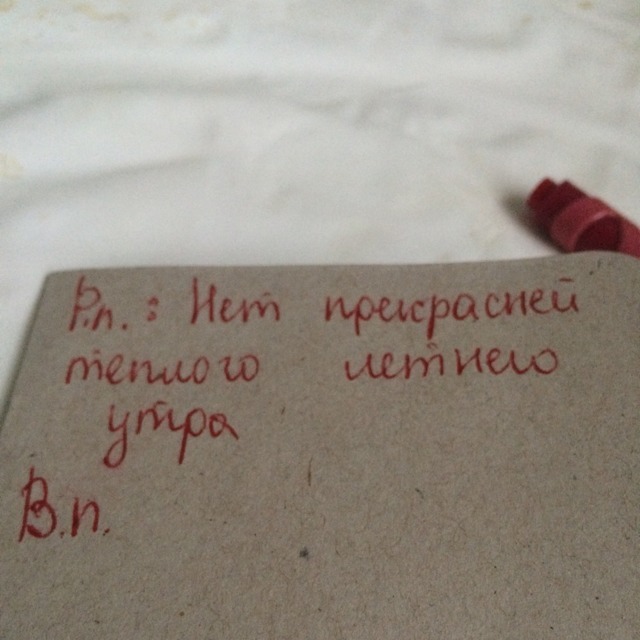 Р.п. : Нет прекрасней
теплого летнего
утра
В.п.